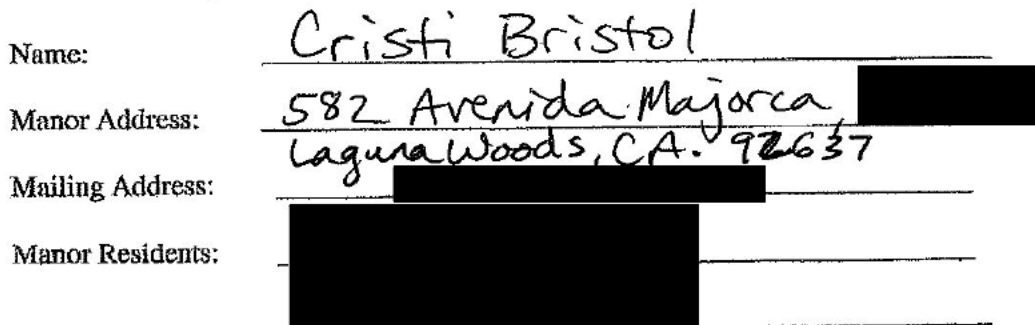 Name: Cristi Bristol
Manor Address: 582 Avenida Majorca,
Laguna Woods, CA. 92637
Mailing Address:
Manor Residents: